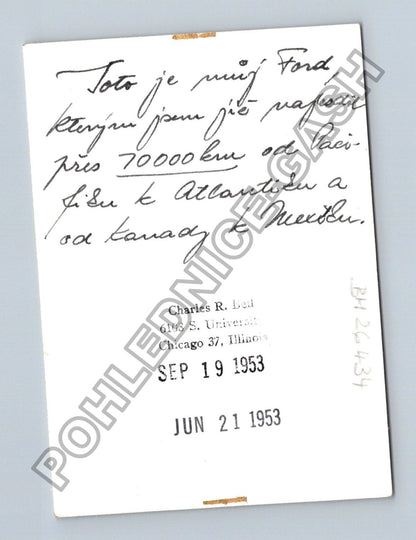 Toto je můj Ford
kterým jsem již najezdil
přes 70000 km od Paci-
fiku k Atlantiku a
od Kanady k Mexiku.
Charles R. Bell
S. University
Chicago 37, Illinois
SEP 19 1953
JUN 21 1953
BH 26 434
POHLEDNICE-GASH